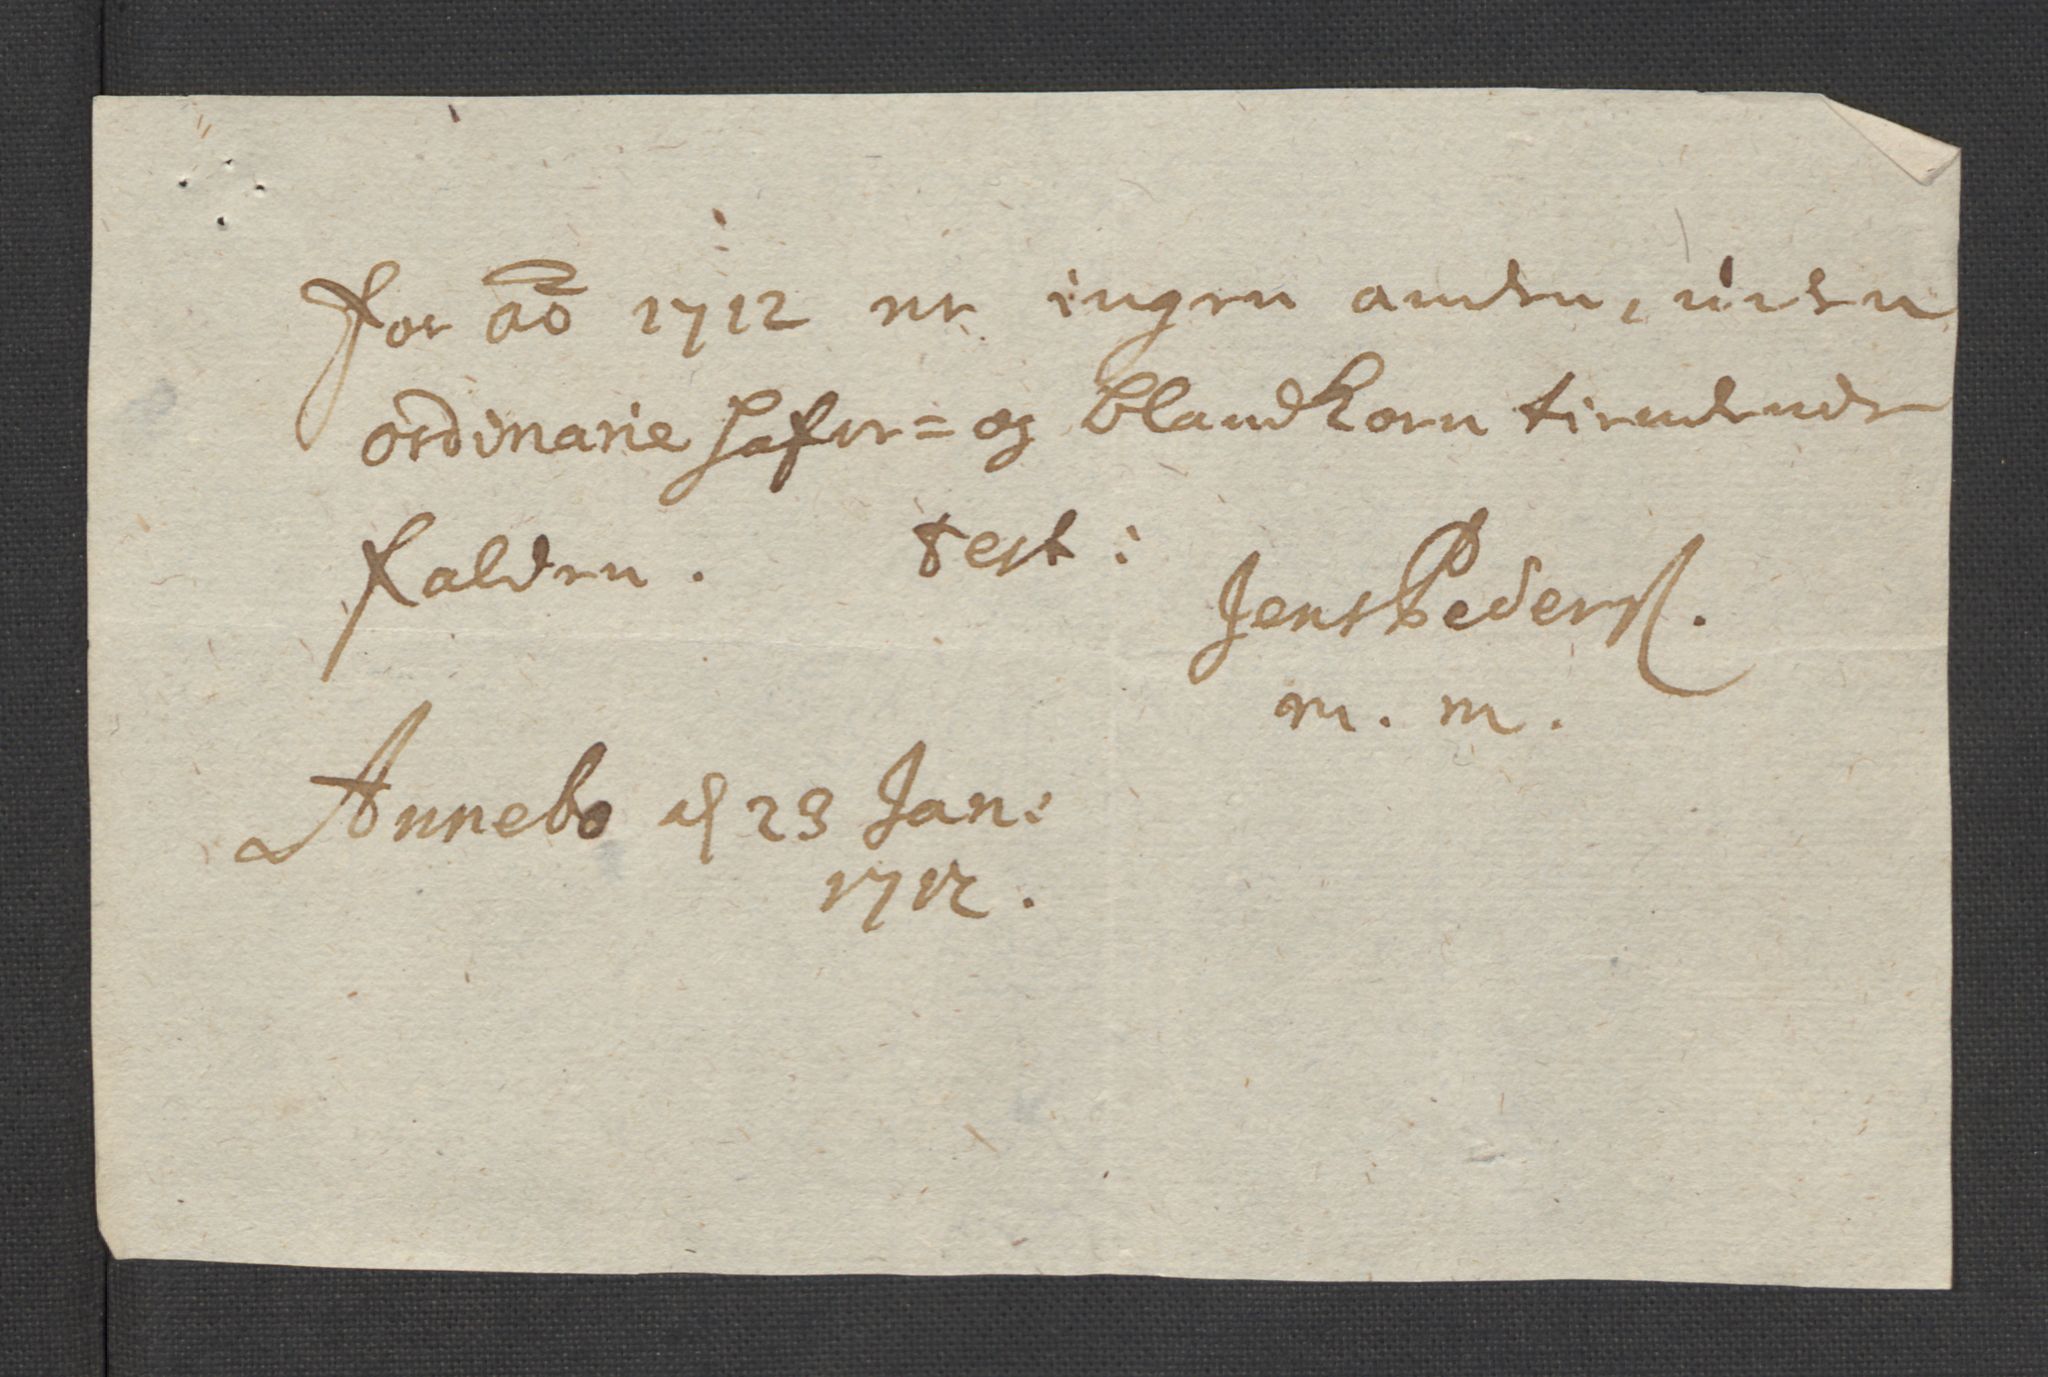 for ao 1712 er ingen anden, uden
ordinarie Hafer= og blandkorn tiendende
falden. Test:
Jens Pederß.
m. m.
Annebo d 23 Jan:
1712.